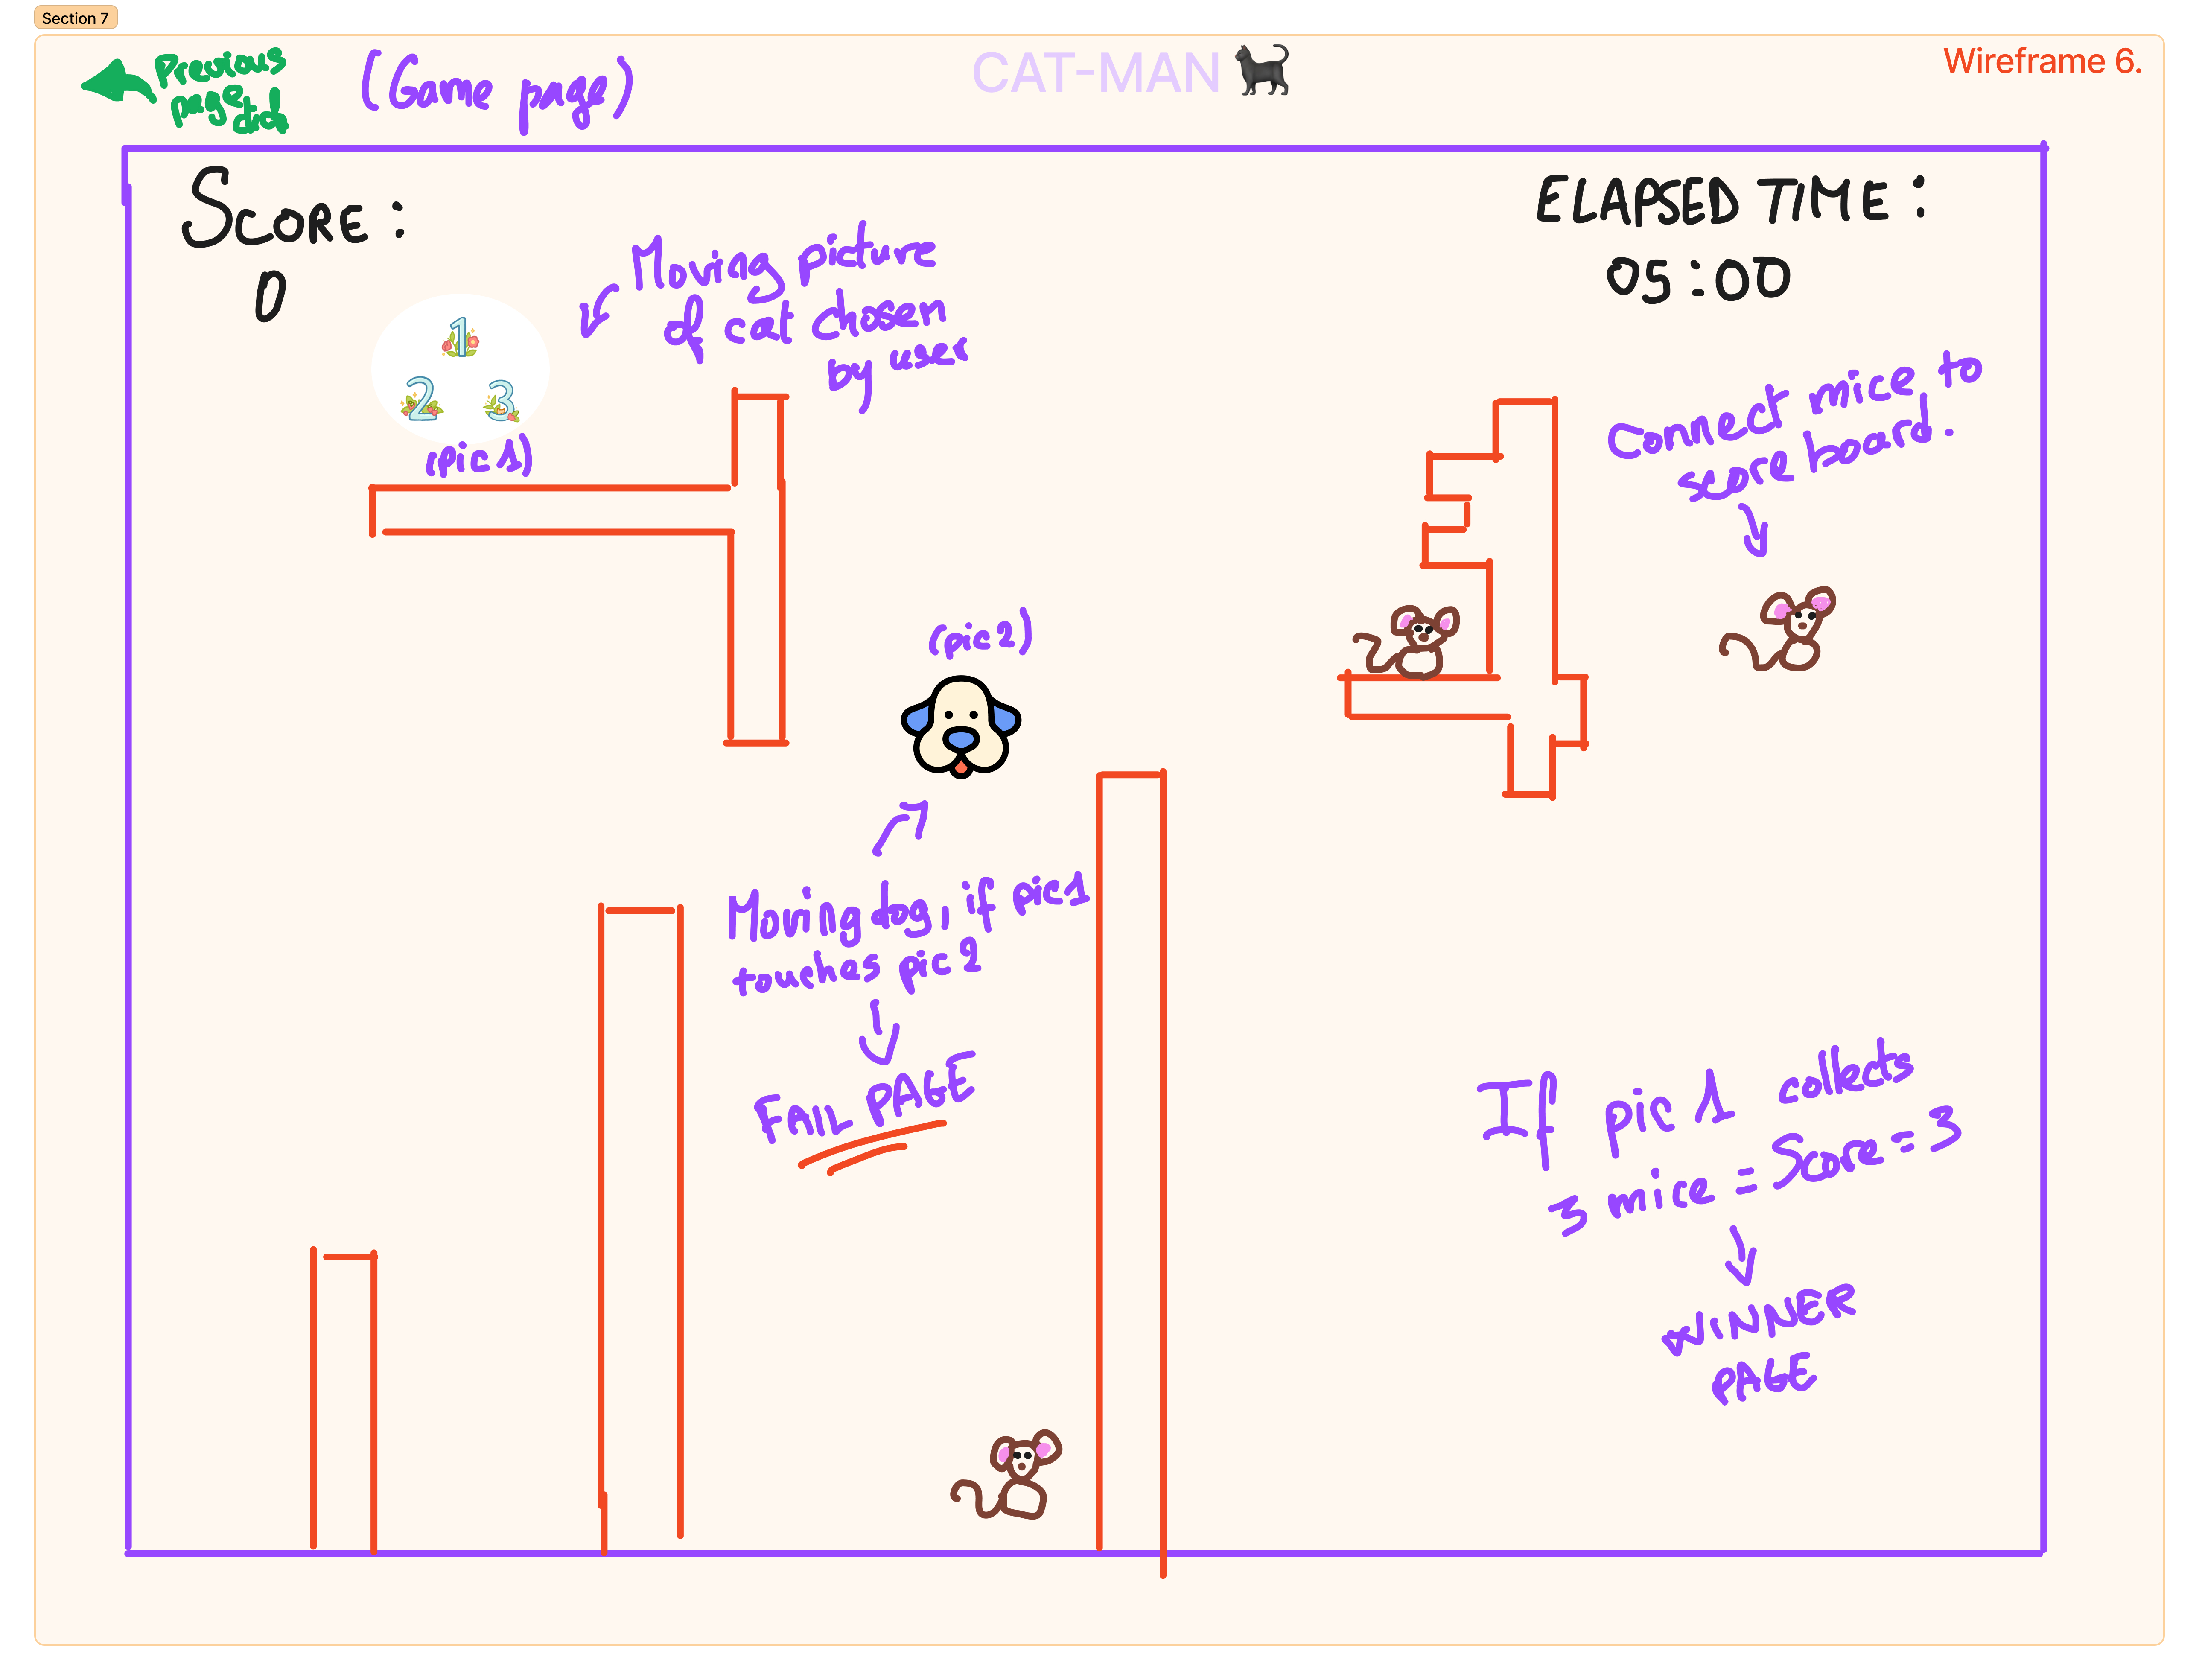 Section 7
Previous
page
dir
(Game page)
CAT-MAN
Wireframe 6.
SCORE :
0
ELAPSED TIME :
05:00
Moving picture
of cat chosen
by user
1
2 3
(pic 1)
Connect mice to
score board.
(pic 2)
Moving dog, if pic 1
touches pic 2
FAIL PAGE
If pic 1 collects
3 mice = Score = 3
WINNER
PAGE